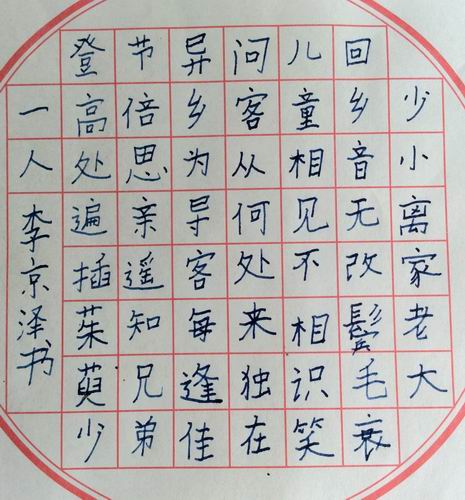 少小离家老大
回乡音无改鬓毛衰
儿童相见不相识笑
问客从何处来独在
异乡为导客每逢佳
节倍思亲遥知兄弟
登高处遍插茱萸少
一人
李京泽书